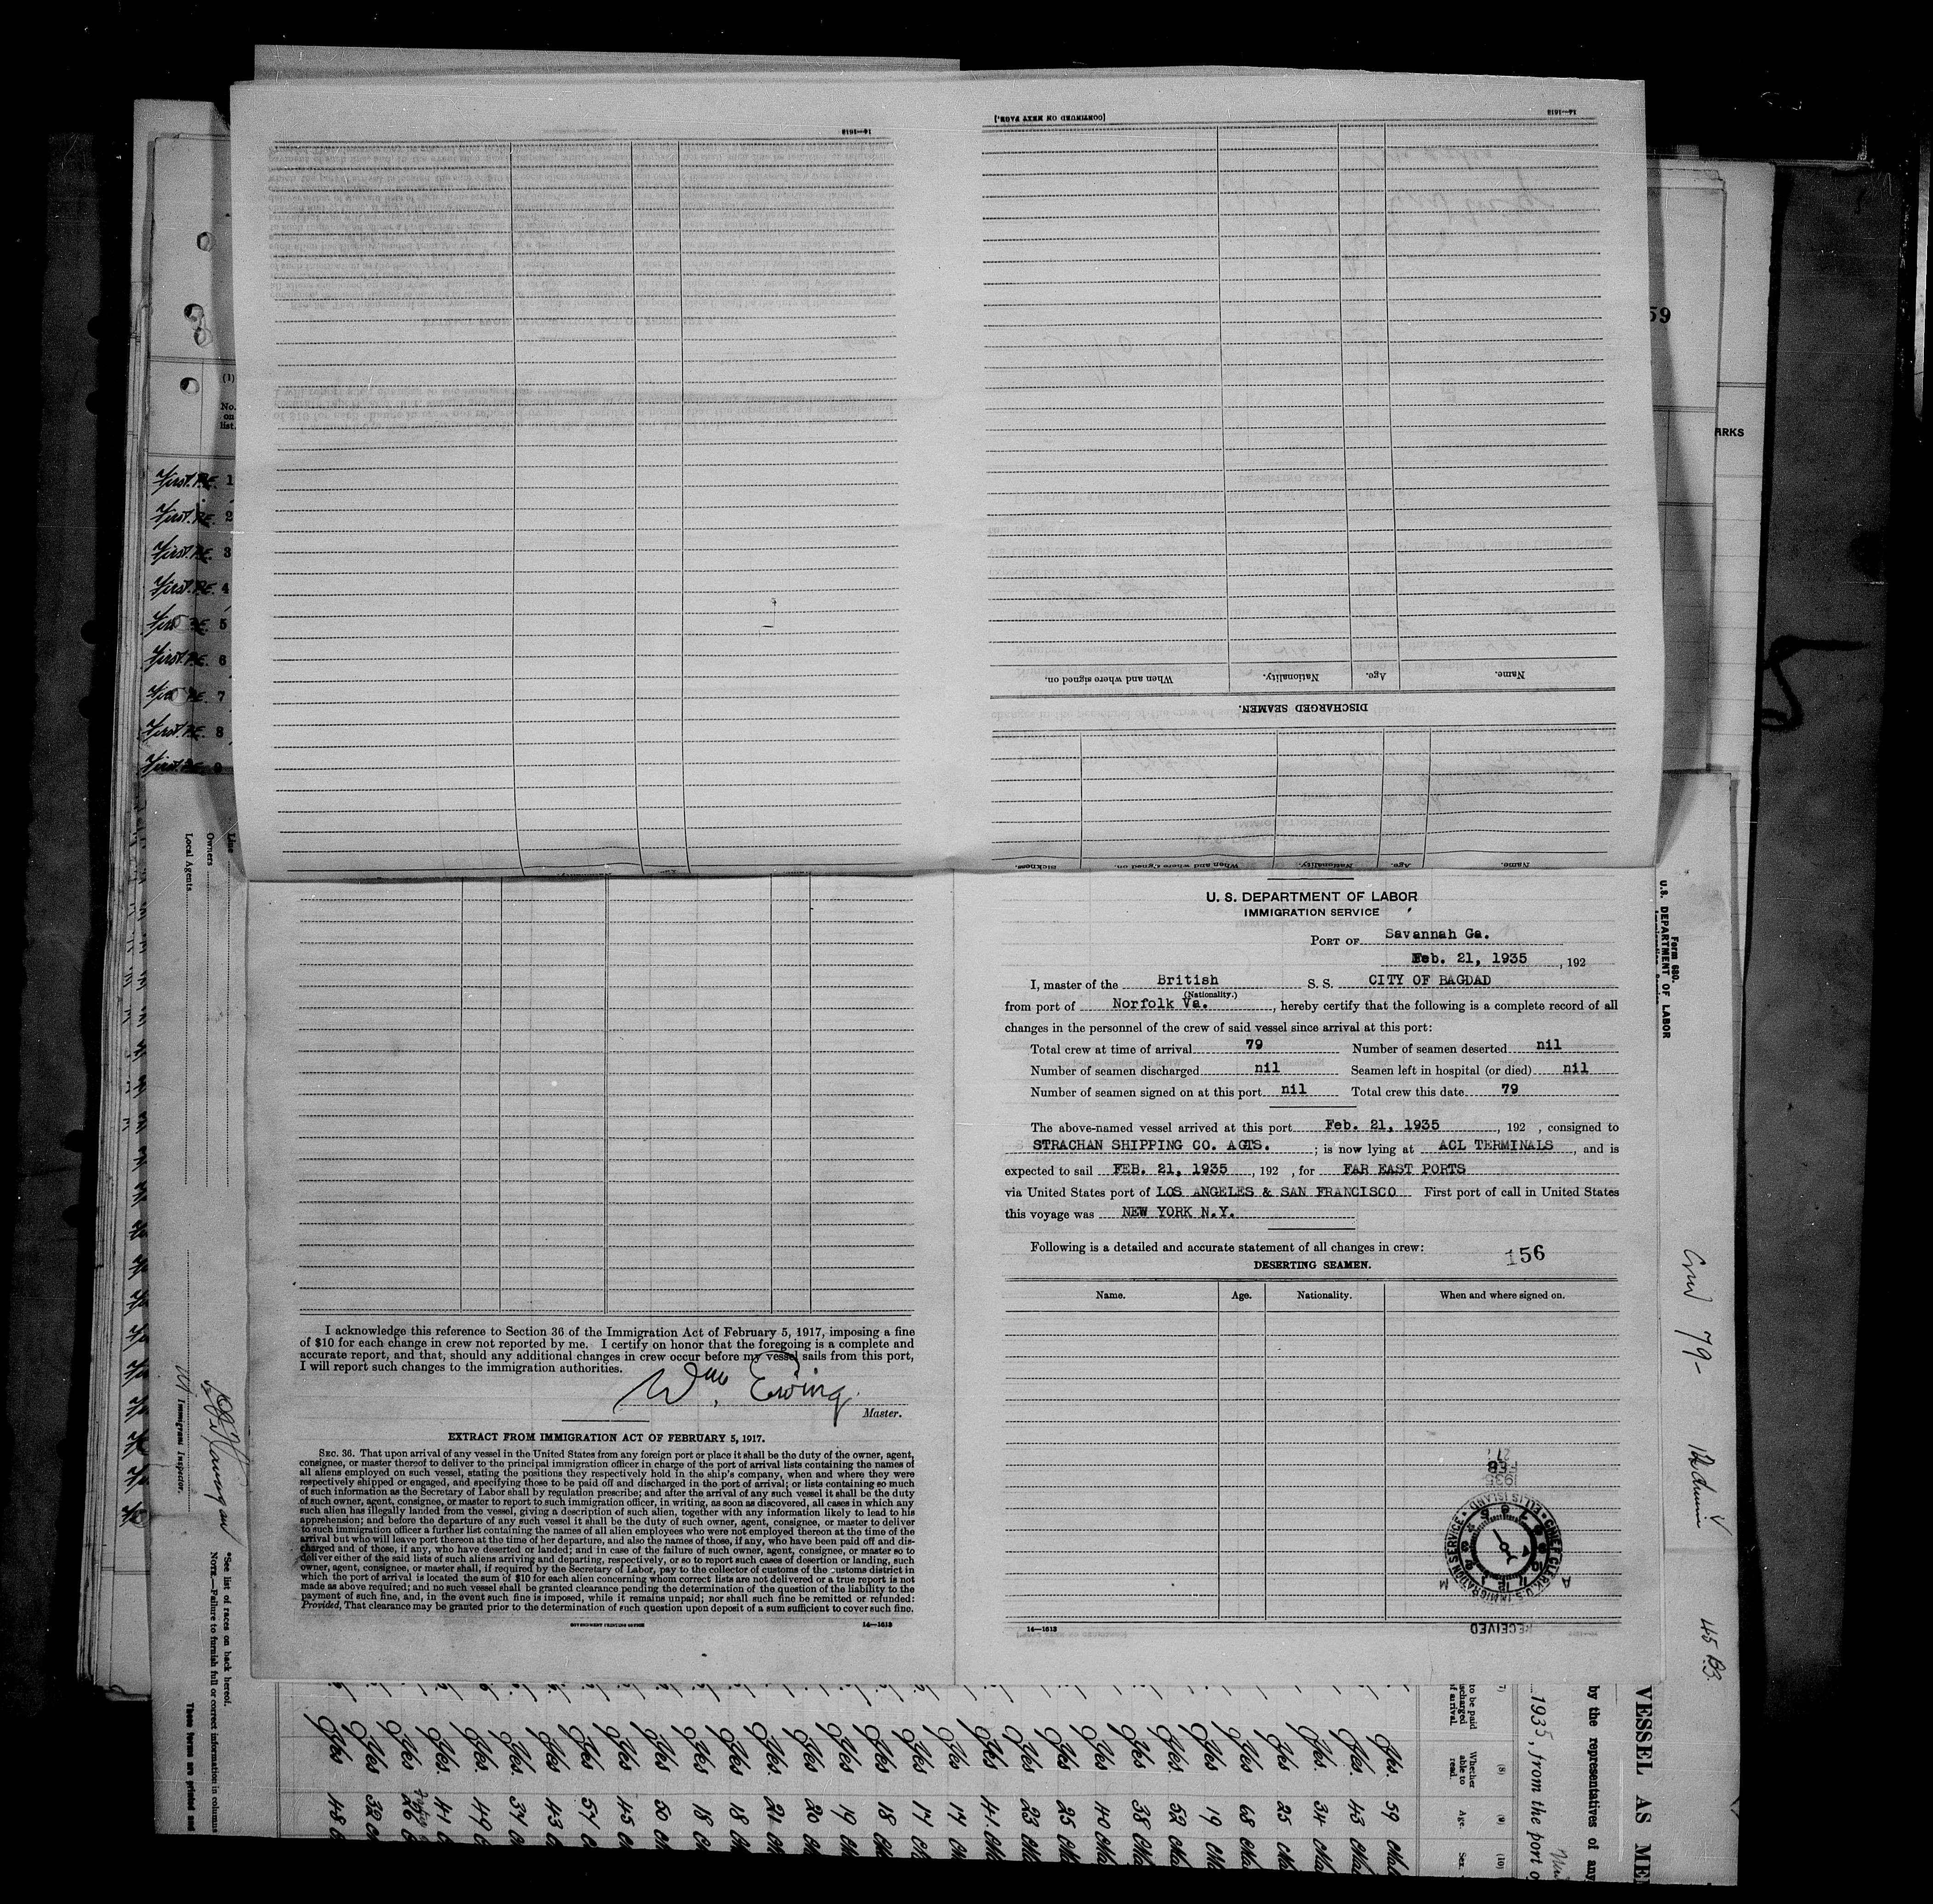 U. S. DEPARTMENT OF LABOR
IMMIGRATION SERVICE
PORT OF Savannah Ga.
Feb. 21, 1935 , 192
I, master of the British S. S. CITY OF BAGDAD
(Nationality.)
from port of Norfolk Va. , hereby certify that the following is a complete record of all
changes in the personnel of the crew of said vessel since arrival at this port:
Total crew at time of arrival 79 Number of seamen deserted nil
Number of seamen discharged nil Seamen left in hospital (or died) nil
Number of seamen signed on at this port nil Total crew this date 79
The above-named vessel arrived at this port Feb. 21, 1935 , 192 , consigned to
STRACHAN SHIPPING CO. AGTS. ; is now lying at ACL TERMINALS , and is
expected to sail FEB. 21, 1935 , 192 , for FAR EAST PORTS
via United States port of LOS ANGELES & SAN FRANCISCO First port of call in United States
this voyage was NEW YORK N.Y.
Following is a detailed and accurate statement of all changes in crew:
156
DESERTING SEAMEN.
Name. Age. Nationality. When and where signed on.
FEB
1935
CHIEF CLERK U. S. IMMIGRATION SERVICE ELLIS ISLAND
A M
RECEIVED
14—1613
I acknowledge this reference to Section 36 of the Immigration Act of February 5, 1917, imposing a fine
of $10 for each change in crew not reported by me. I certify on honor that the foregoing is a complete and
accurate report, and that, should any additional changes in crew occur before my vessel sails from this port,
I will report such changes to the immigration authorities.
Wm Ewing
Master.
EXTRACT FROM IMMIGRATION ACT OF FEBRUARY 5, 1917.
SEC. 36. That upon arrival of any vessel in the United States from any foreign port or place it shall be the duty of the owner, agent,
consignee, or master thereof to deliver to the principal immigration officer in charge of the port of arrival lists containing the names of
all aliens employed on such vessel, stating the positions they respectively hold in the ship's company, when and where they were
respectively shipped or engaged, and specifying those to be paid off and discharged in the port of arrival; or lists containing so much
of such information as the Secretary of Labor shall by regulation prescribe; and after the arrival of any such vessel it shall be the duty
of such owner, agent, consignee, or master to report to such immigration officer, in writing, as soon as discovered, all cases in which any
such alien has illegally landed from the vessel, giving a description of such alien, together with any information likely to lead to his
apprehension; and before the departure of any such vessel it shall be the duty of such owner, agent, consignee, or master to deliver
to such immigration officer a further list containing the names of all alien employees who were not employed thereon at the time of the
arrival but who will leave port thereon at the time of her departure, and also the names of those, if any, who have been paid off and dis-
charged and of those, if any, who have deserted or landed; and in case of the failure of such owner, agent, consignee, or master so to
deliver either of the said lists of such aliens arriving and departing, respectively, or so to report such cases of desertion or landing, such
owner, agent, consignee, or master shall, if required by the Secretary of Labor, pay to the collector of customs of the customs district in
which the port of arrival is located the sum of $10 for each alien concerning whom correct lists are not delivered or a true report is not
made as above required; and no such vessel shall be granted clearance pending the determination of the question of the liability to the
payment of such fine, and, in the event such fine is imposed, while it remains unpaid; nor shall such fine be remitted or refunded:
Provided, That clearance may be granted prior to the determination of such question upon deposit of a sum sufficient to cover such fine.
GOVERNMENT PRINTING OFFICE 14—1613
[CONTINUED ON NEXT PAGE.]
14—1613
14—1613
Name. Age. Nationality. When and where signed on.
DISCHARGED SEAMEN.
Name. Age. Nationality. When and where signed on. Sickness.
(1)
No.
on
list.
First P.E. 1
First P.E. 2
First P.E. 3
First P.E. 4
5
First P.E. 6
7
First P.E. 8
First P.E. 9
59
ARKS
Line
Owners
Local Agents
Immigrant Inspector.
*See list of races on back hereof.
NOTE.—Failure to furnish full or correct information in columns
These forms are printed and
Form 680.
U. S. DEPARTMENT OF LABOR
Crew 79-
VESSEL AS ME
by the representatives of any
1935, from the port o
to be paid
Whether
able to
read.
(8)
Age.
(9)
Sex.
(10)
Yes. 59
Yes. 43
Yes. 34
Yes 25
Yes 68
Yes 19
Yes 52
Yes 38
Yes 40
Yes 25
Yes 23
Yes 41
Yes 17
Yes 17
Yes 18
Yes 19
Yes 20
Yes 21
Yes 18
Yes 18
Yes 50
Yes 45
Yes 54
Yes 43
Yes. 34
Yes. 49
Yes. 41
Yes 26
Yes 32
Yes 48